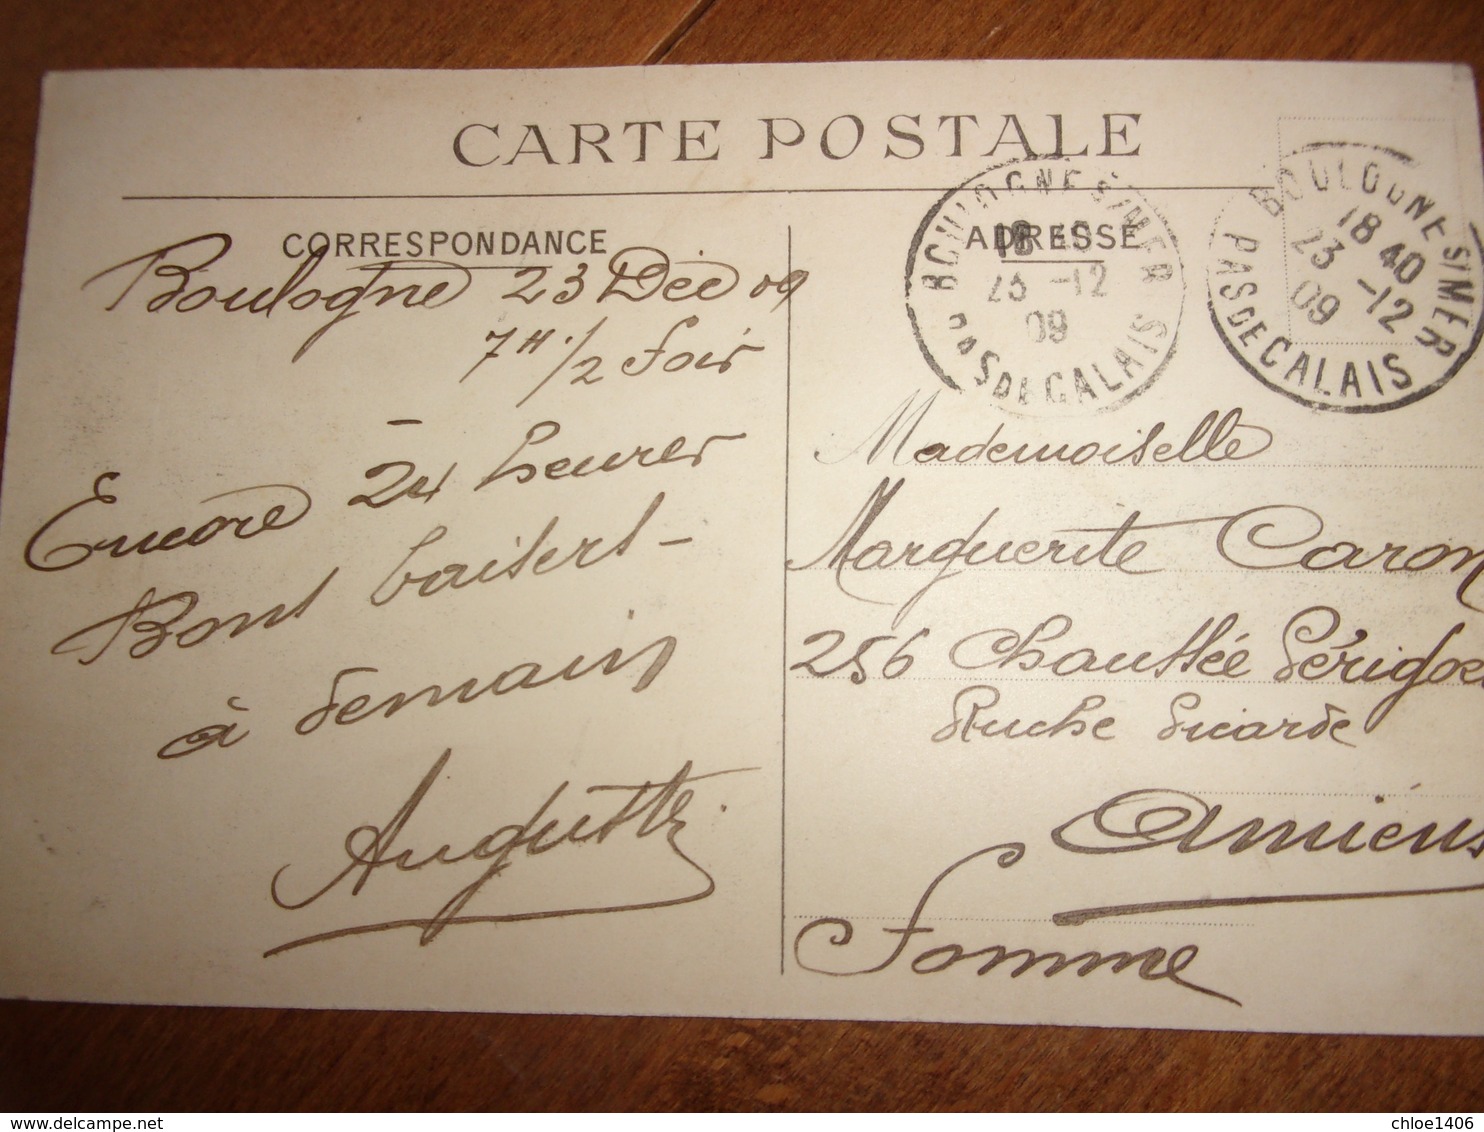 CARTE POSTALE
CORRESPONDANCE
Boulogne 23 Déc 09
7H. 1/2 soir
Encore 24 heures
Bons baisers -
à demain
Auguste
ADRESSE
BOULOGNE S/MER
23 -12
09
PAS DE CALAIS
BOULOGNE S/MER
18 40
23 -12
09
PAS DE CALAIS
Mademoiselle
Marguerite Caron
256 Chaussée Périgo
Ruche Picarde
Amiens
Somme
delcampe.net
chloe1406